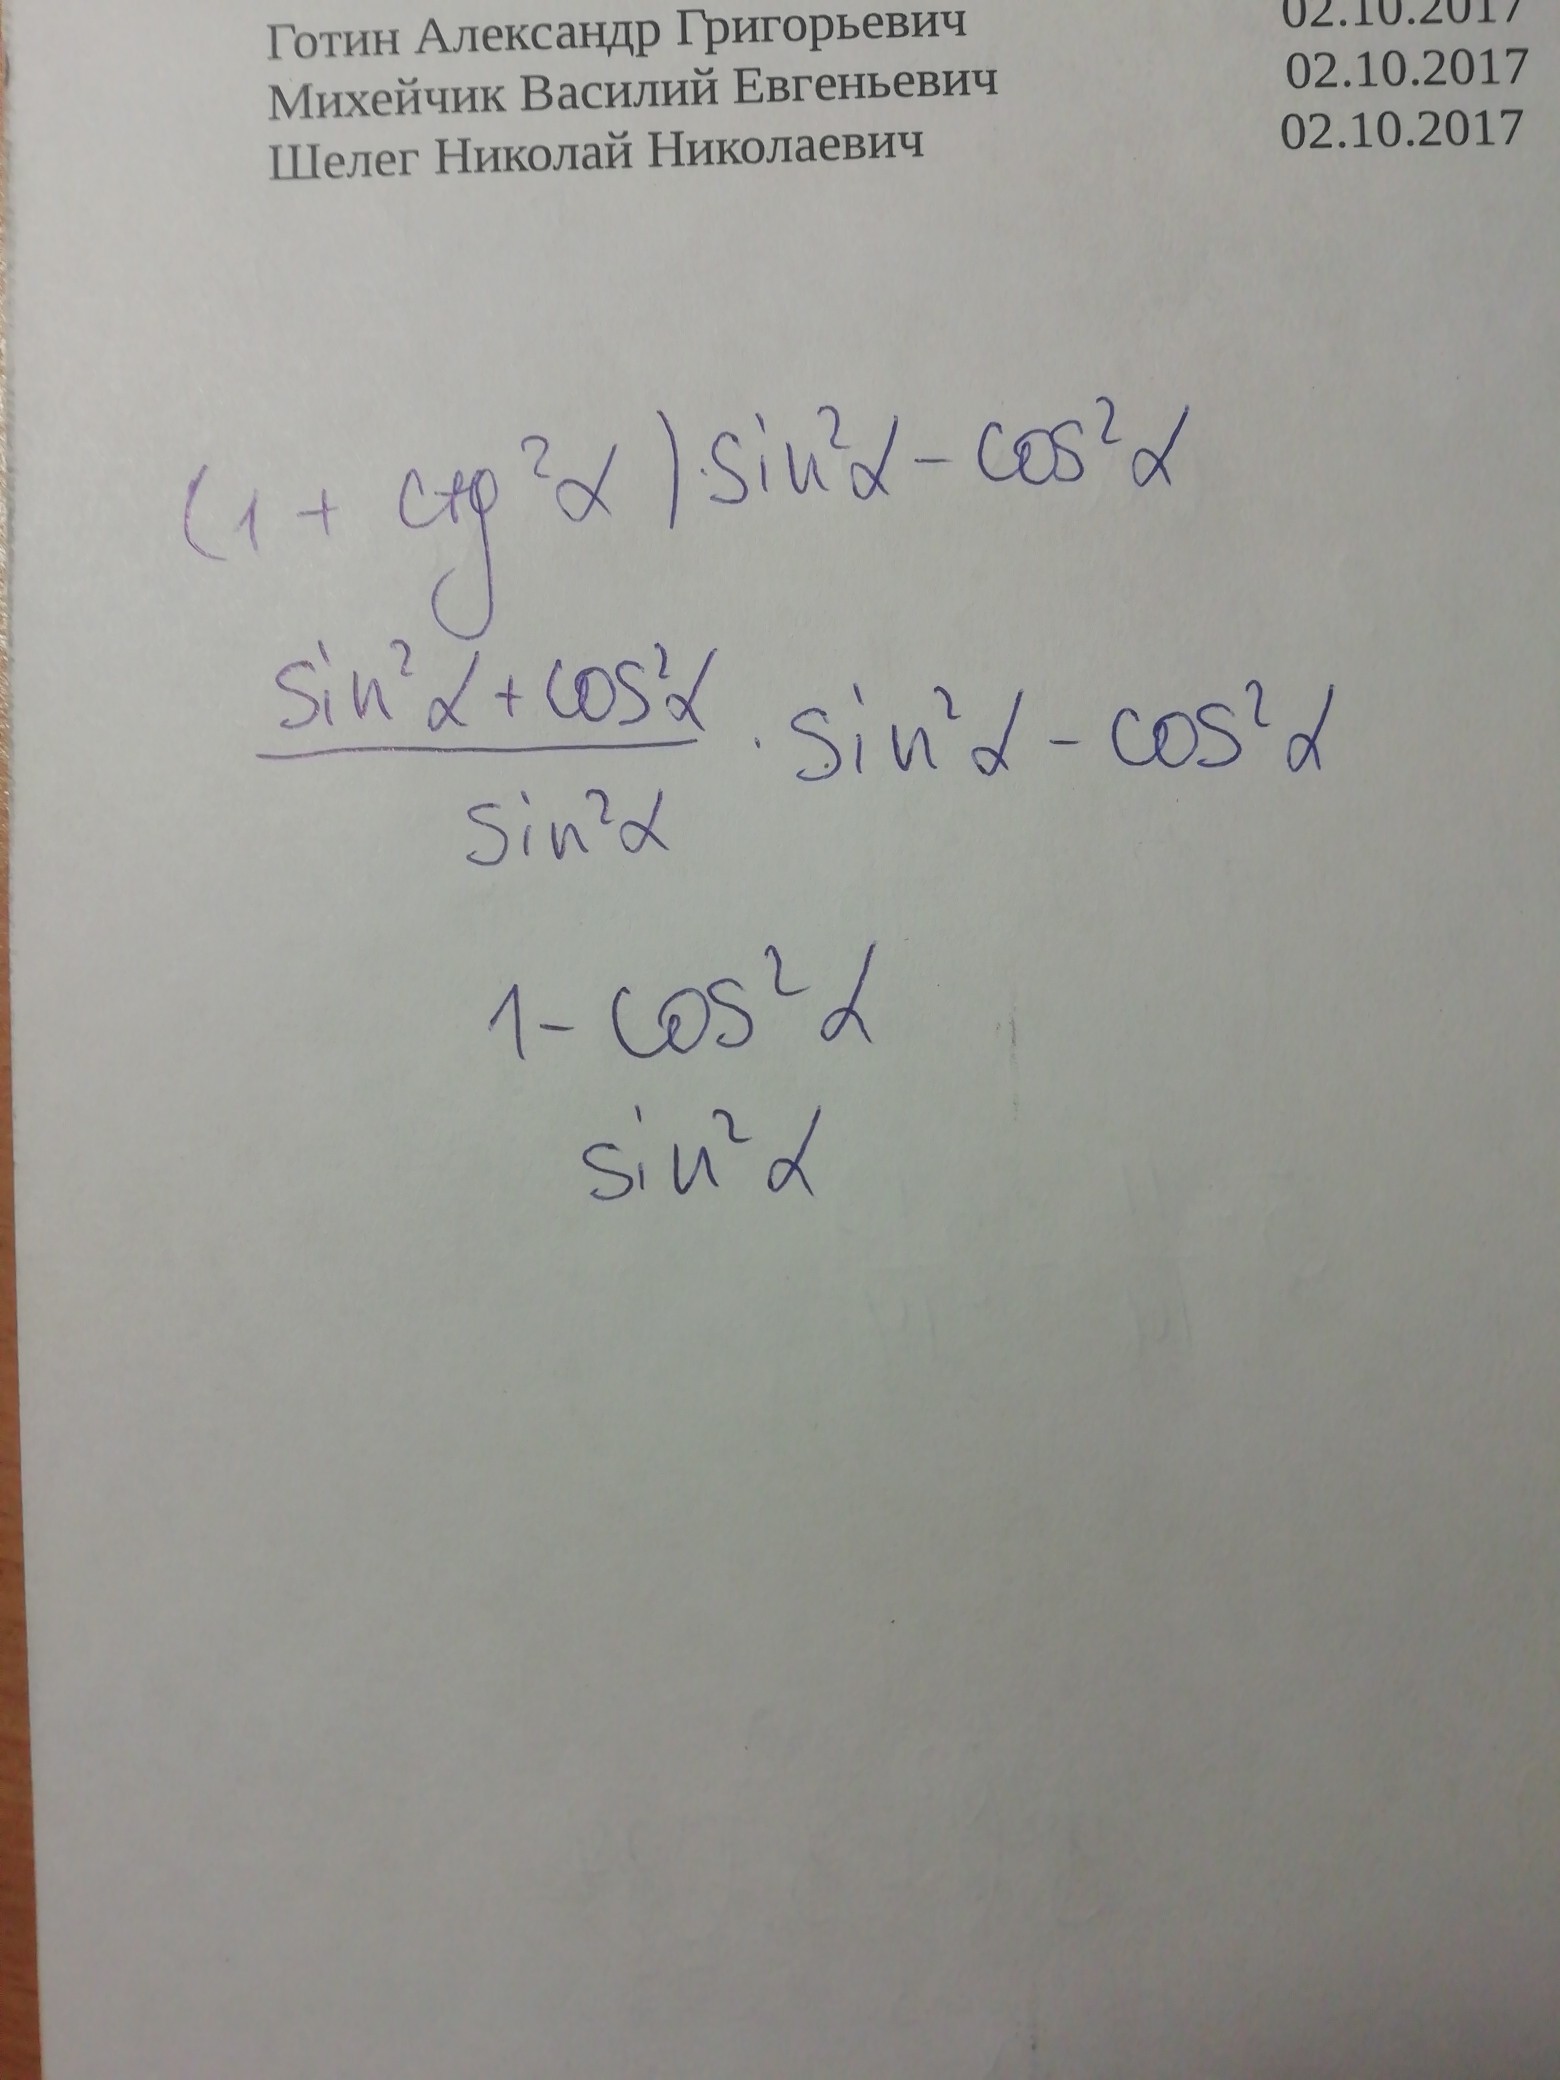 Готин Александр Григорьевич 02.10.2017
Михейчик Василий Евгеньевич 02.10.2017
Шелег Николай Николаевич 02.10.2017
(1 + ctg²α)·sin²α - cos²α
sin²α + cos²α
· sin²α - cos²α
sin²α
1 - cos²α
sin²α